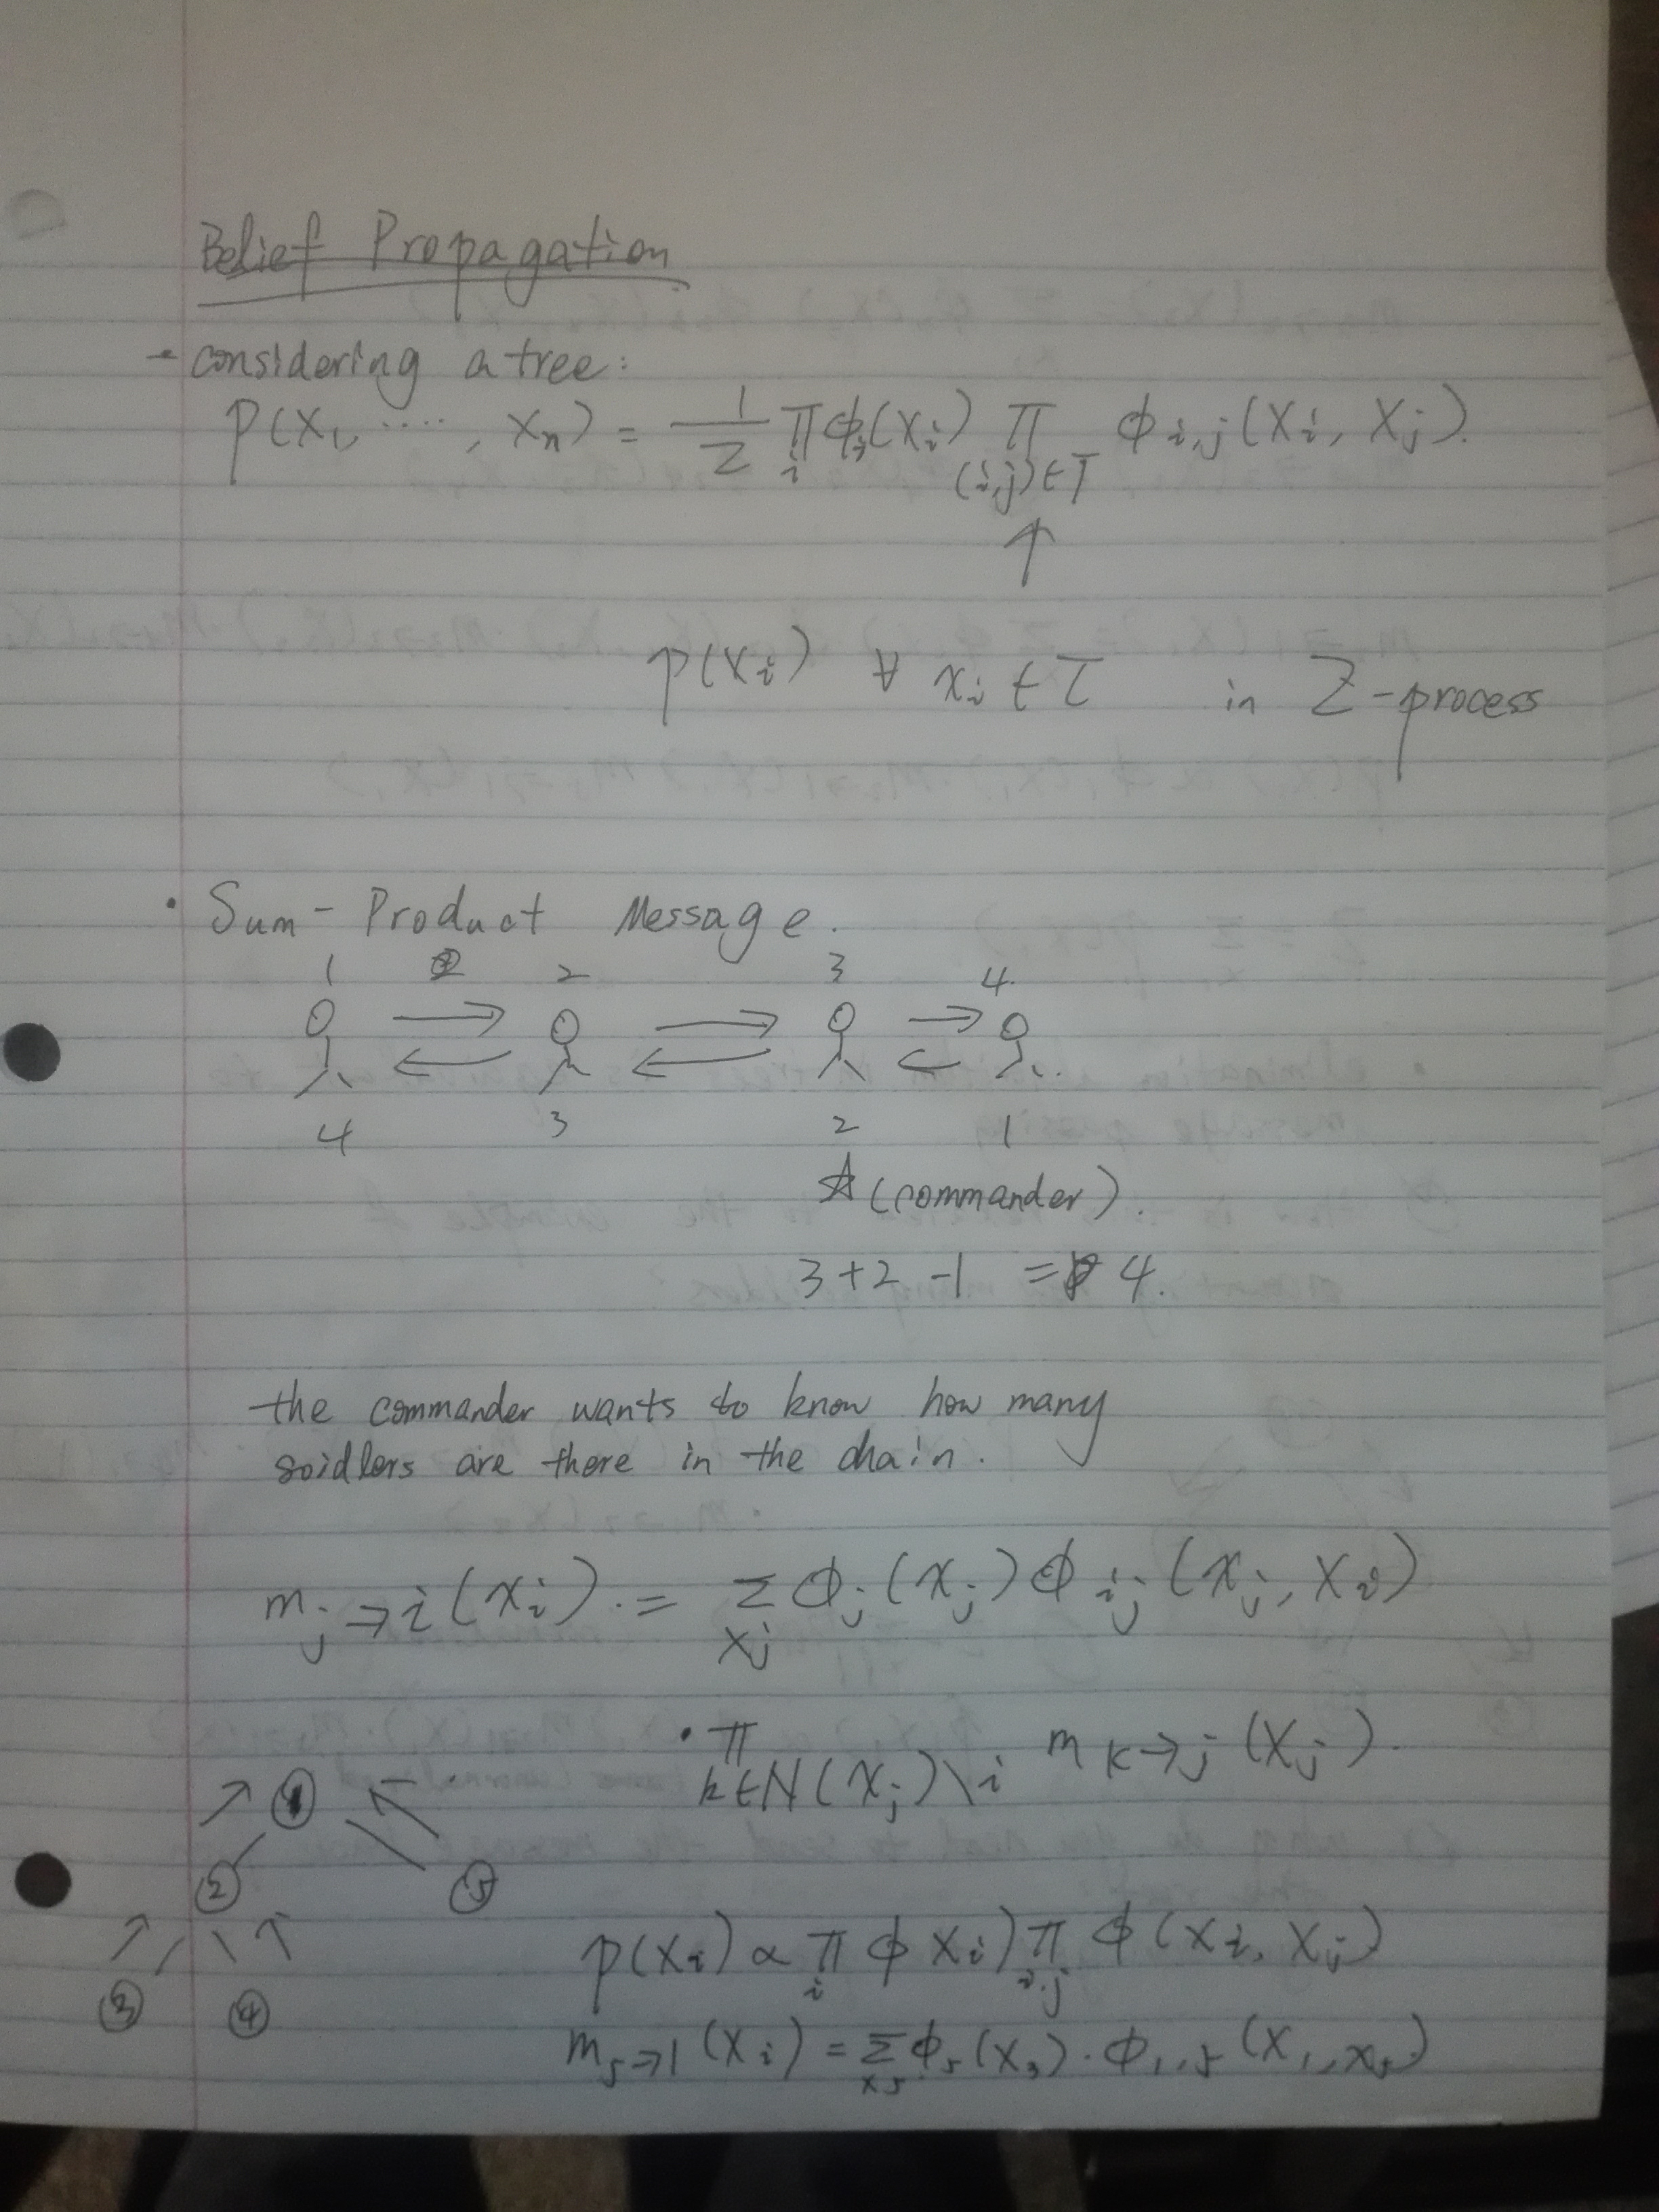 Belief Propagation
- considering a tree:
p(x₁, ····, xₙ) = 1/Z ∏_i ϕ_i(x_i) ∏_{(i,j)∈T} ϕ_{i,j}(x_i, x_j).
↑
p(x_i) ∀ x_i ∈ T in Z-process
• Sum-Product Message.
1 2 3 4.
4 3 2 1
☆ (commander).
3+2-1 = 4.
the commander wants to know how many
soidlers are there in the chain.
m_{j→i}(x_i) = Σ_{x_j} ϕ_j(x_j) ϕ_{ij}(x_j, x_i)
• ∏_{k∈N(x_j)\i} m_{k→j}(x_j).
① ② ⑤
③ ④
p(x_i) ∝ ∏_i ϕ x_i) ∏_{i,j} ϕ(x_i, x_j)
m_{5→1}(x_i) = Σ_{x_5} ϕ_5(x_5) · ϕ_{1,5}(x_1, x_5)